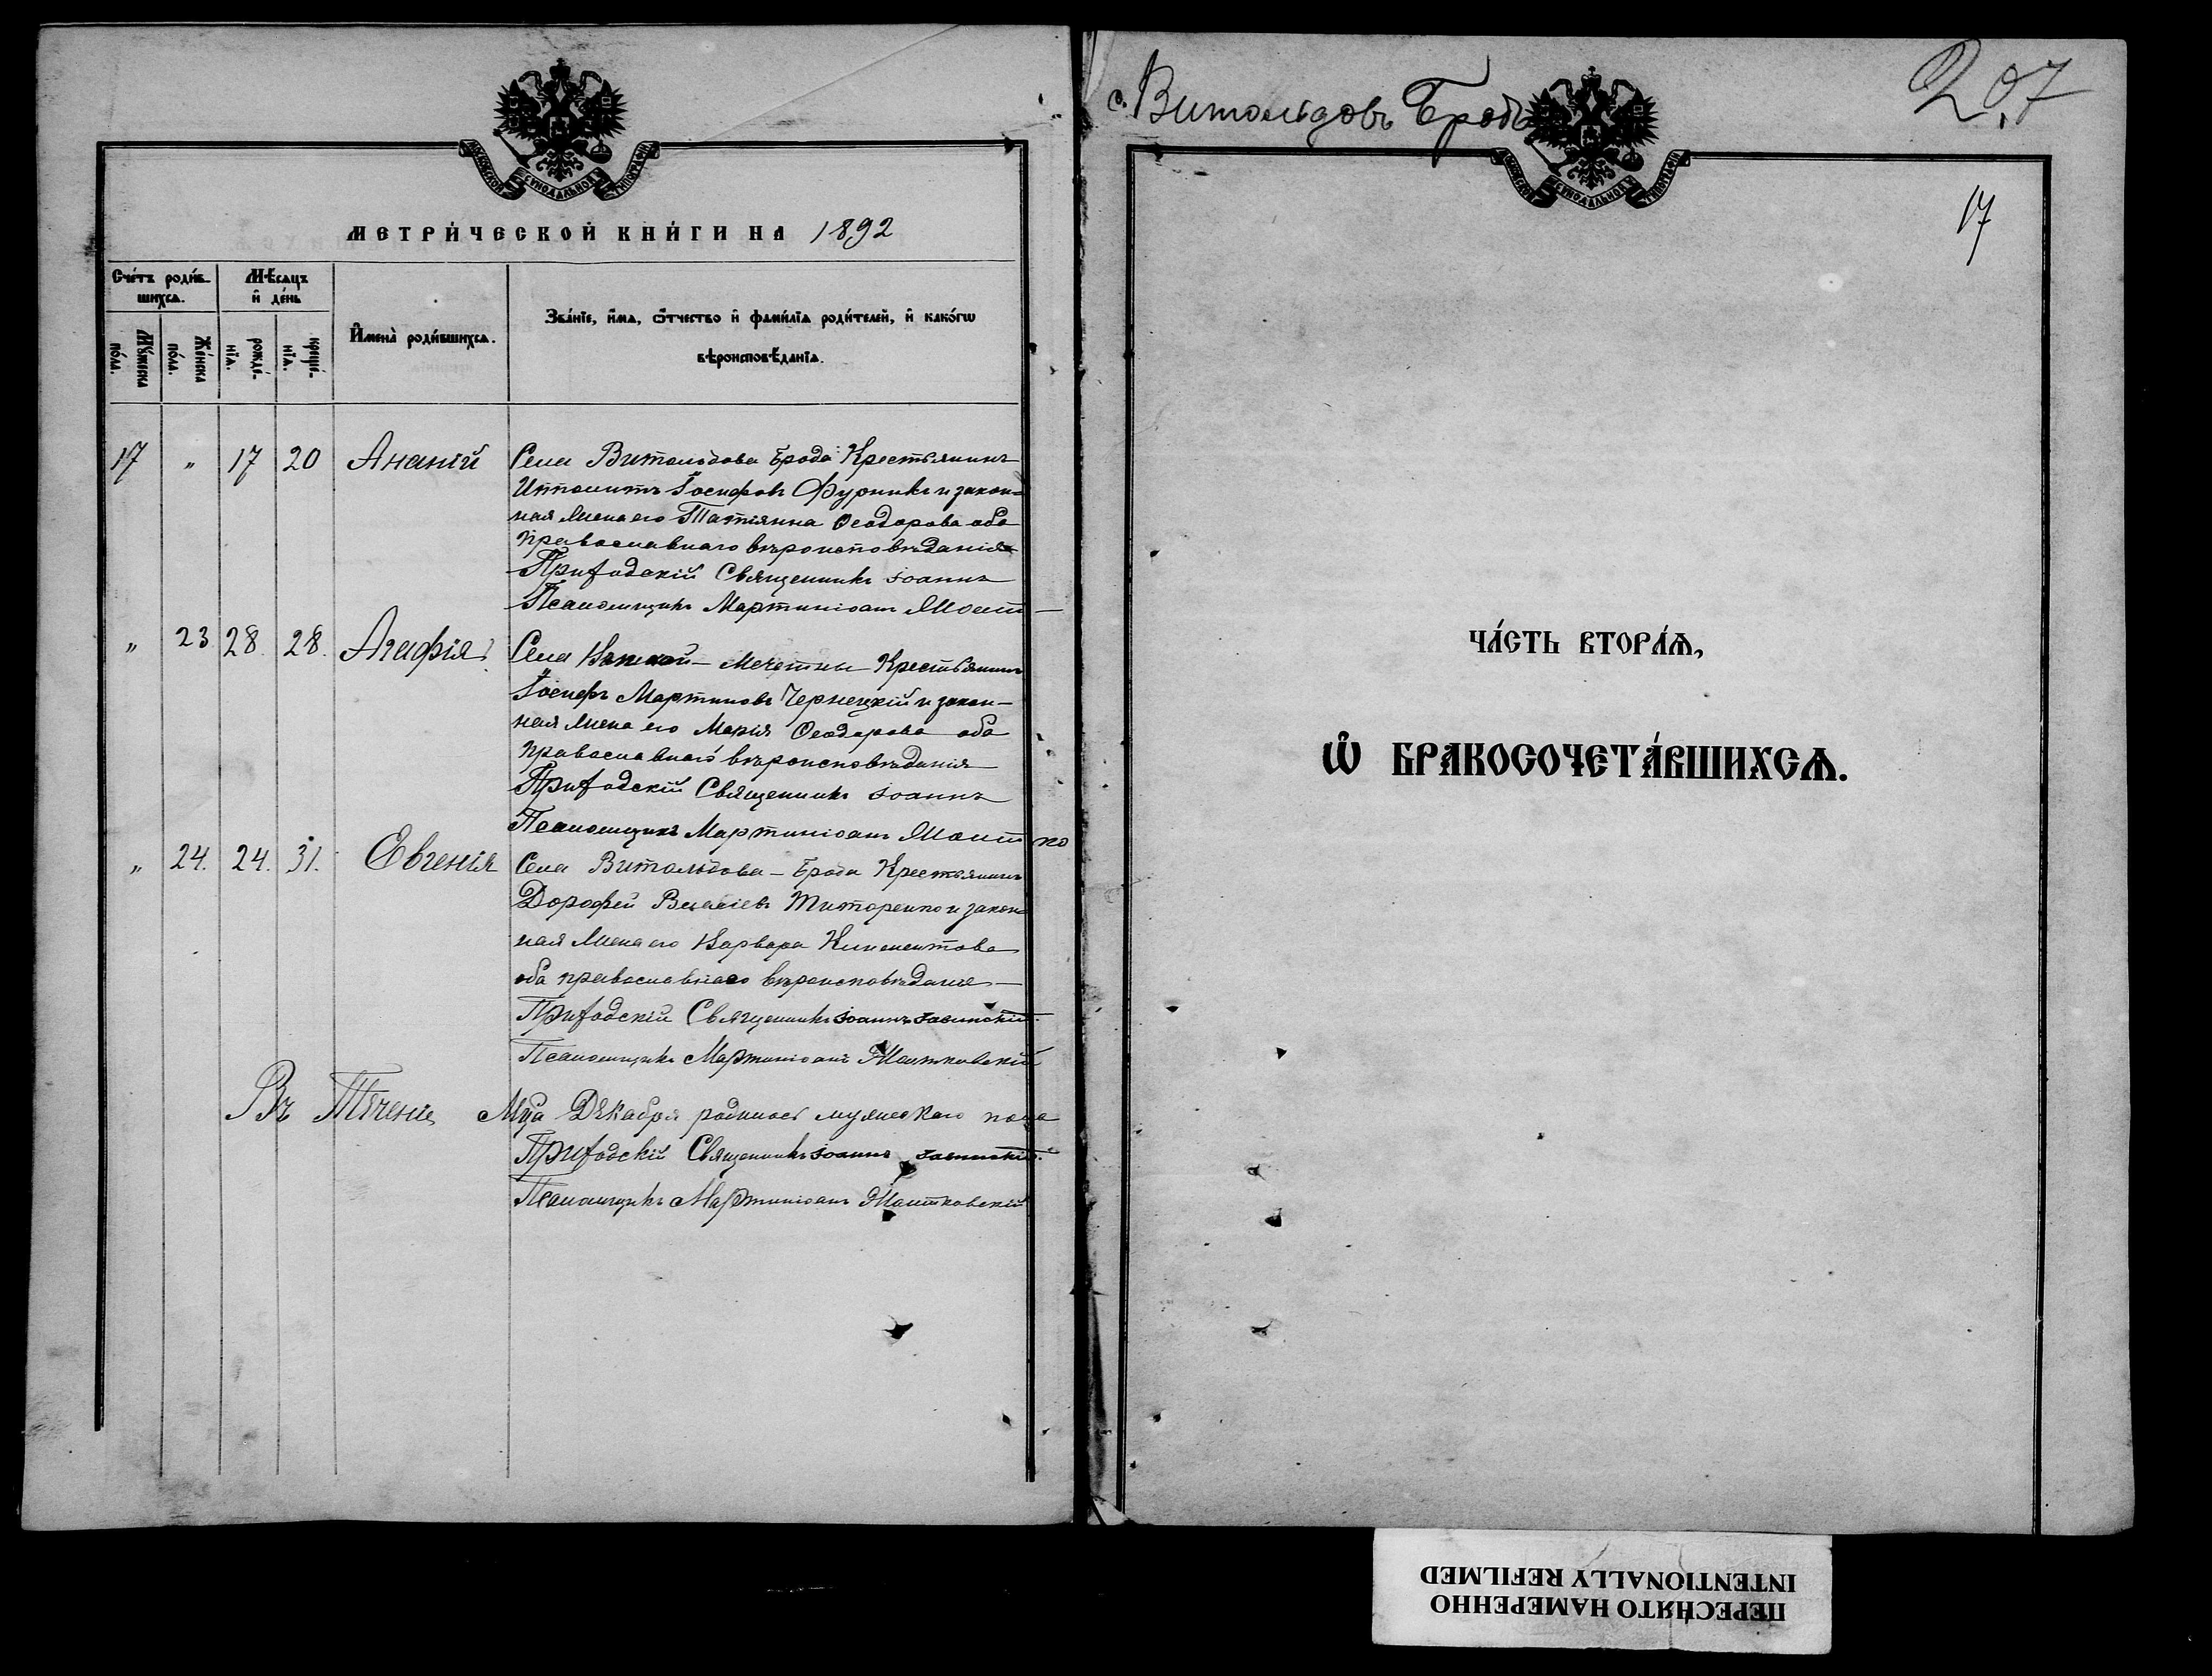 МОСКОВСКОЙ СУНОДАЛЬНОЙ ТИПОГРАФІИ
МЕТРИ́ЧЕСКОЙ КНИ́ГИ НА 1892
Сче́тъ роди́в-
шихсѧ.
Мѣ́сѧцъ
и҆ де́нь
Мꙋ́жеска
по́ла.
Же́нска
по́ла.
рожде́-
нїѧ.
креще́-
нїѧ.
И҆мена̀ роди́вшихсѧ.
Зва́нїе, и҆́мѧ, ѻ҆́тчество и҆ фами́лїѧ роди́телей, и҆ како́гѡ
вѣроисповѣ́данїѧ.
17 " 17 20 Ананій Села Витольдова Брода Крестьянинъ
Ипполитъ Іосифовъ Фурникъ и закон=
ная жена его Татіянна Ѳеодорова оба
православнаго вѣроисповѣданія
Приходскій Священникъ Іоаннъ
Псаломщикъ Мартиніанъ
" 23 28. 28. Агафія Села Мечетны Крестьянинъ
Іосифъ Мартиновъ Чернецкій и закон-
ная жена его Марія Ѳеодорова оба
православнаго вѣроисповѣданія
Приходскій Священникъ Іоаннъ
Псаломщикъ Мартиніанъ
" 24. 24. 31. Евгенія Села Витольдова-Брода Крестьянинъ
Дорофей Власіевъ Титаренко и закон=
ная жена его Варвара Климентова
оба православнаго вѣроисповѣданія
Приходскій Священникъ Іоаннъ
Псаломщикъ Мартиніанъ
Въ Теченіе Мца Декабря родилось мужескаго пола
Приходскій Священникъ Іоаннъ
Псаломщикъ Мартиніанъ
с. Витольдовъ Бродъ
207
МОСКОВСКОЙ СУНОДАЛЬНОЙ ТИПОГРАФІИ
17
ЧА́СТЬ ВТОРА́Ѧ,
Ѡ҆ БРАКОСОЧЕТА́ВШИХСѦ.
ПЕРЕСНЯТО НАМЕРЕННО
INTENTIONALLY REFILMED